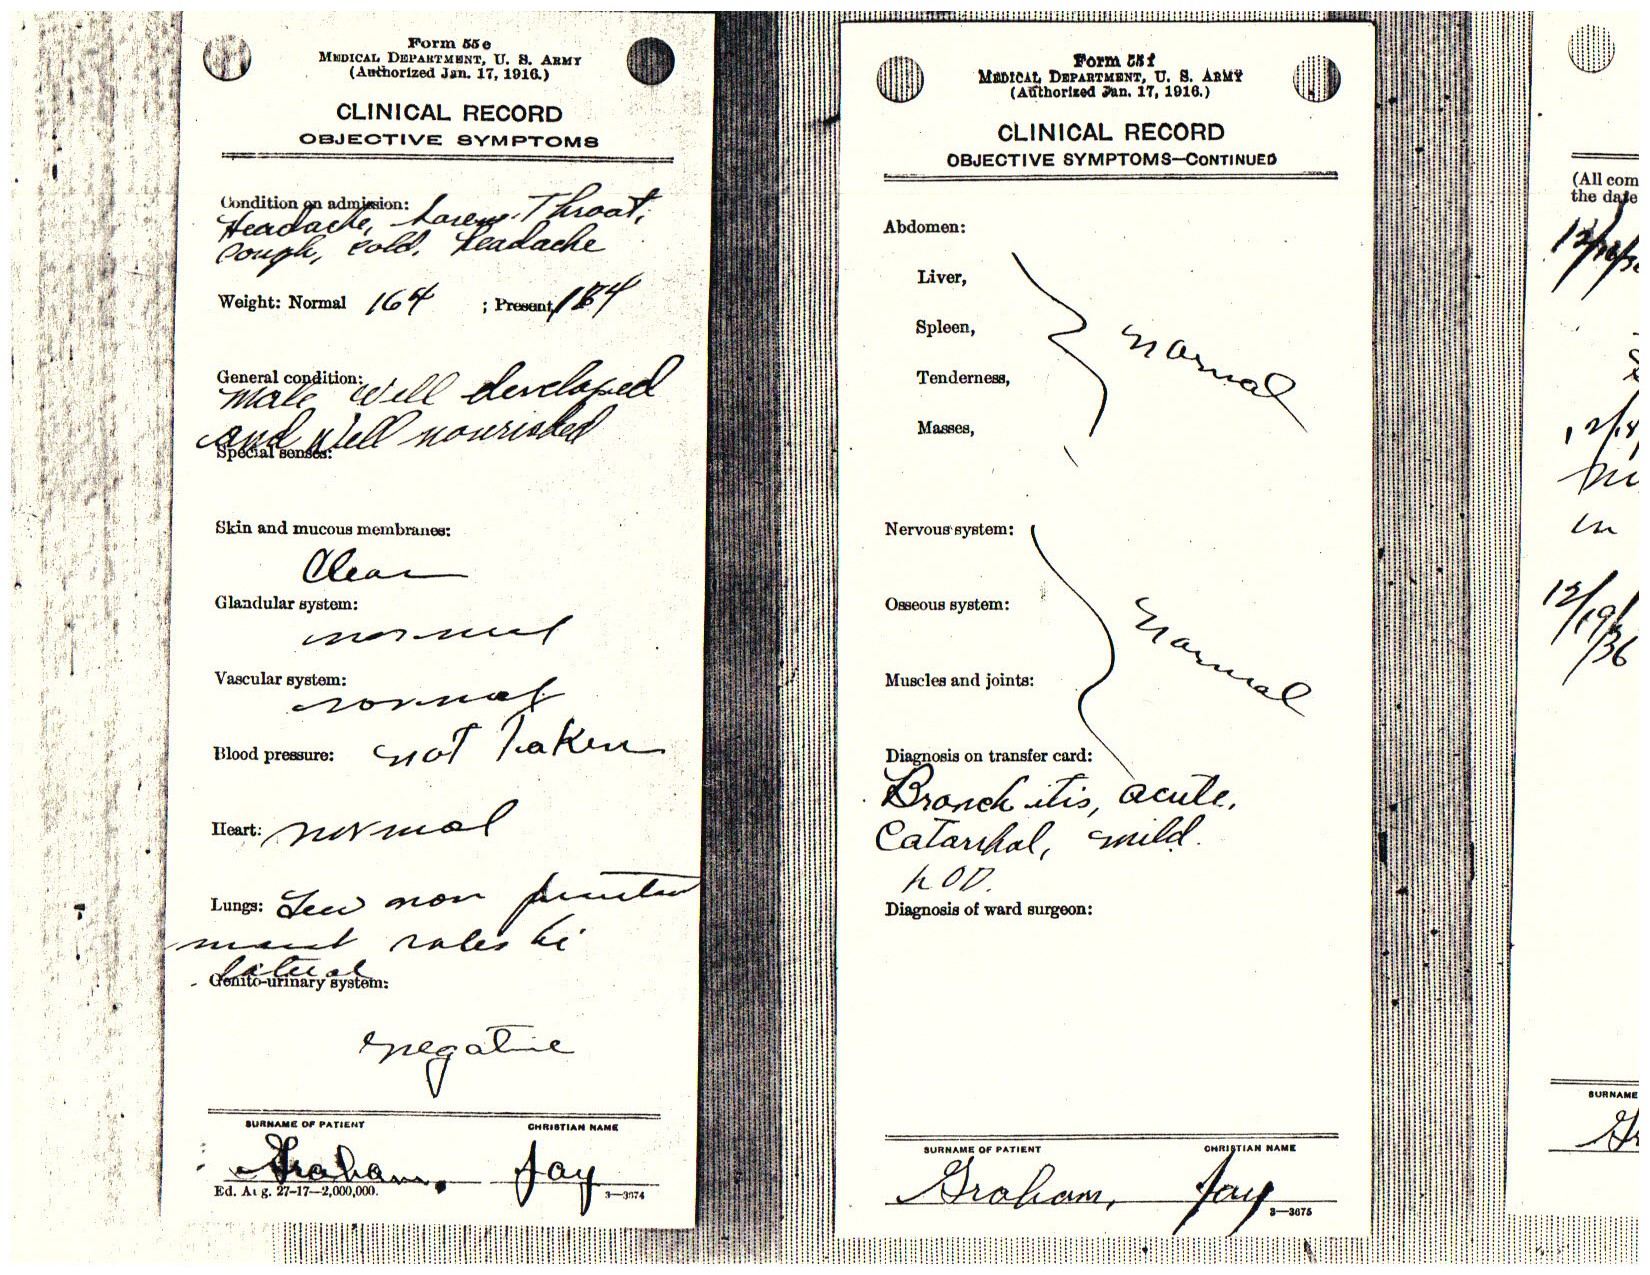 Form 55e
MEDICAL DEPARTMENT, U. S. ARMY
(Authorized Jan. 17, 1916.)
CLINICAL RECORD
OBJECTIVE SYMPTOMS
Condition on admission:
Headache, Throat,
cough, cold, headache
Weight: Normal 164 ; Present, 184
General condition:
Male well developed
and well nourished
Special senses:
Skin and mucous membranes:
Clear
Glandular system:
normal
Vascular system:
normal
Blood pressure: not Taken
Heart: normal
Lungs: Few non
rales bi
lateral
Genito-urinary system:
negative
SURNAME OF PATIENT CHRISTIAN NAME
Graham, Jay
Ed. Aug. 27-17—2,000,000. 3—3074
Form 55f
MEDICAL DEPARTMENT, U. S. ARMY
(Authorized Jan. 17, 1916.)
CLINICAL RECORD
OBJECTIVE SYMPTOMS—CONTINUED
Abdomen:
Liver,
Spleen,
Normal
Tenderness,
Masses,
Nervous system:
Osseous system:
Normal
Muscles and joints:
Diagnosis on transfer card:
Bronchitis, acute,
Catarrhal, mild.
Diagnosis of ward surgeon:
SURNAME OF PATIENT CHRISTIAN NAME
Graham, Jay
3—3075
(All com
the date
in
12/19/36
SURNAME
Gr